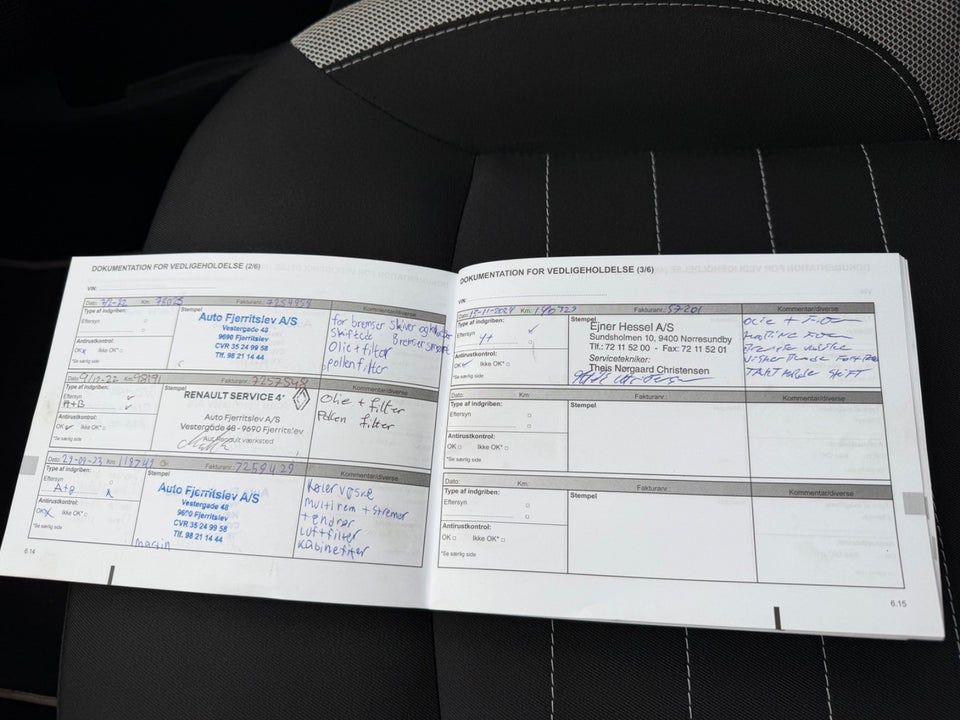 DOKUMENTATION FOR VEDLIGEHOLDELSE (2/6)
VIN:
Dato: Km: 76025 Fakturanr.: 7254958 Kommentar/diverse
Type af indgriben:
Eftersyn
Antirustkontrol:
OK Ikke OK*
*Se særlig side
Stempel
Auto Fjerritslev A/S
Vestergade 48
9690 Fjerritslev
CVR 35 24 99 58
Tlf. 98 21 14 44
for bremser skiver og
skiftede Bremser
Olie + filter
pollenfilter
Dato: 9/12-22 Km: 98191 Fakturanr.: 7257548 Kommentar/diverse
Type af indgriben:
Eftersyn
A+B
Antirustkontrol:
OK Ikke OK*
*Se særlig side
Stempel
RENAULT SERVICE
Auto Fjerritslev A/S
Vestergade 48 - 9690 Fjerritslev
Aut. Renault værksted
Olie + filter
Pollen filter
Dato: 29-09-23 Km: 118749 Fakturanr.: 7259429 Kommentar/diverse
Type af indgriben:
Eftersyn
A+B
Antirustkontrol:
OK Ikke OK*
*Se særlig side
Stempel
Auto Fjerritslev A/S
Vestergade 48
9690 Fjerritslev
CVR 35 24 99 58
Tlf. 98 21 14 44
martin
Køler væske
Multirem + stremer
tændrør
Luftfilter
Kabinefilter
6.14
DOKUMENTATION FOR VEDLIGEHOLDELSE (3/6)
VIN:
Dato: 18-11-2024 Km: Fakturanr.: 57201 Kommentar/diverse
Type af indgriben:
Eftersyn
Antirustkontrol:
OK Ikke OK*
*Se særlig side
Stempel
Ejner Hessel A/S
Sundsholmen 10, 9400 Nørresundby
Tlf.: 72 11 52 00 - Fax: 72 11 52 01
Servicetekniker:
Theis Nørgaard Christensen
Olie +
Dato: Km: Fakturanr.: Kommentar/diverse
Type af indgriben:
Eftersyn
Antirustkontrol:
OK Ikke OK*
*Se særlig side
Stempel
Dato: Km: Fakturanr.: Kommentar/diverse
Type af indgriben:
Eftersyn
Antirustkontrol:
OK Ikke OK*
*Se særlig side
Stempel
6.15